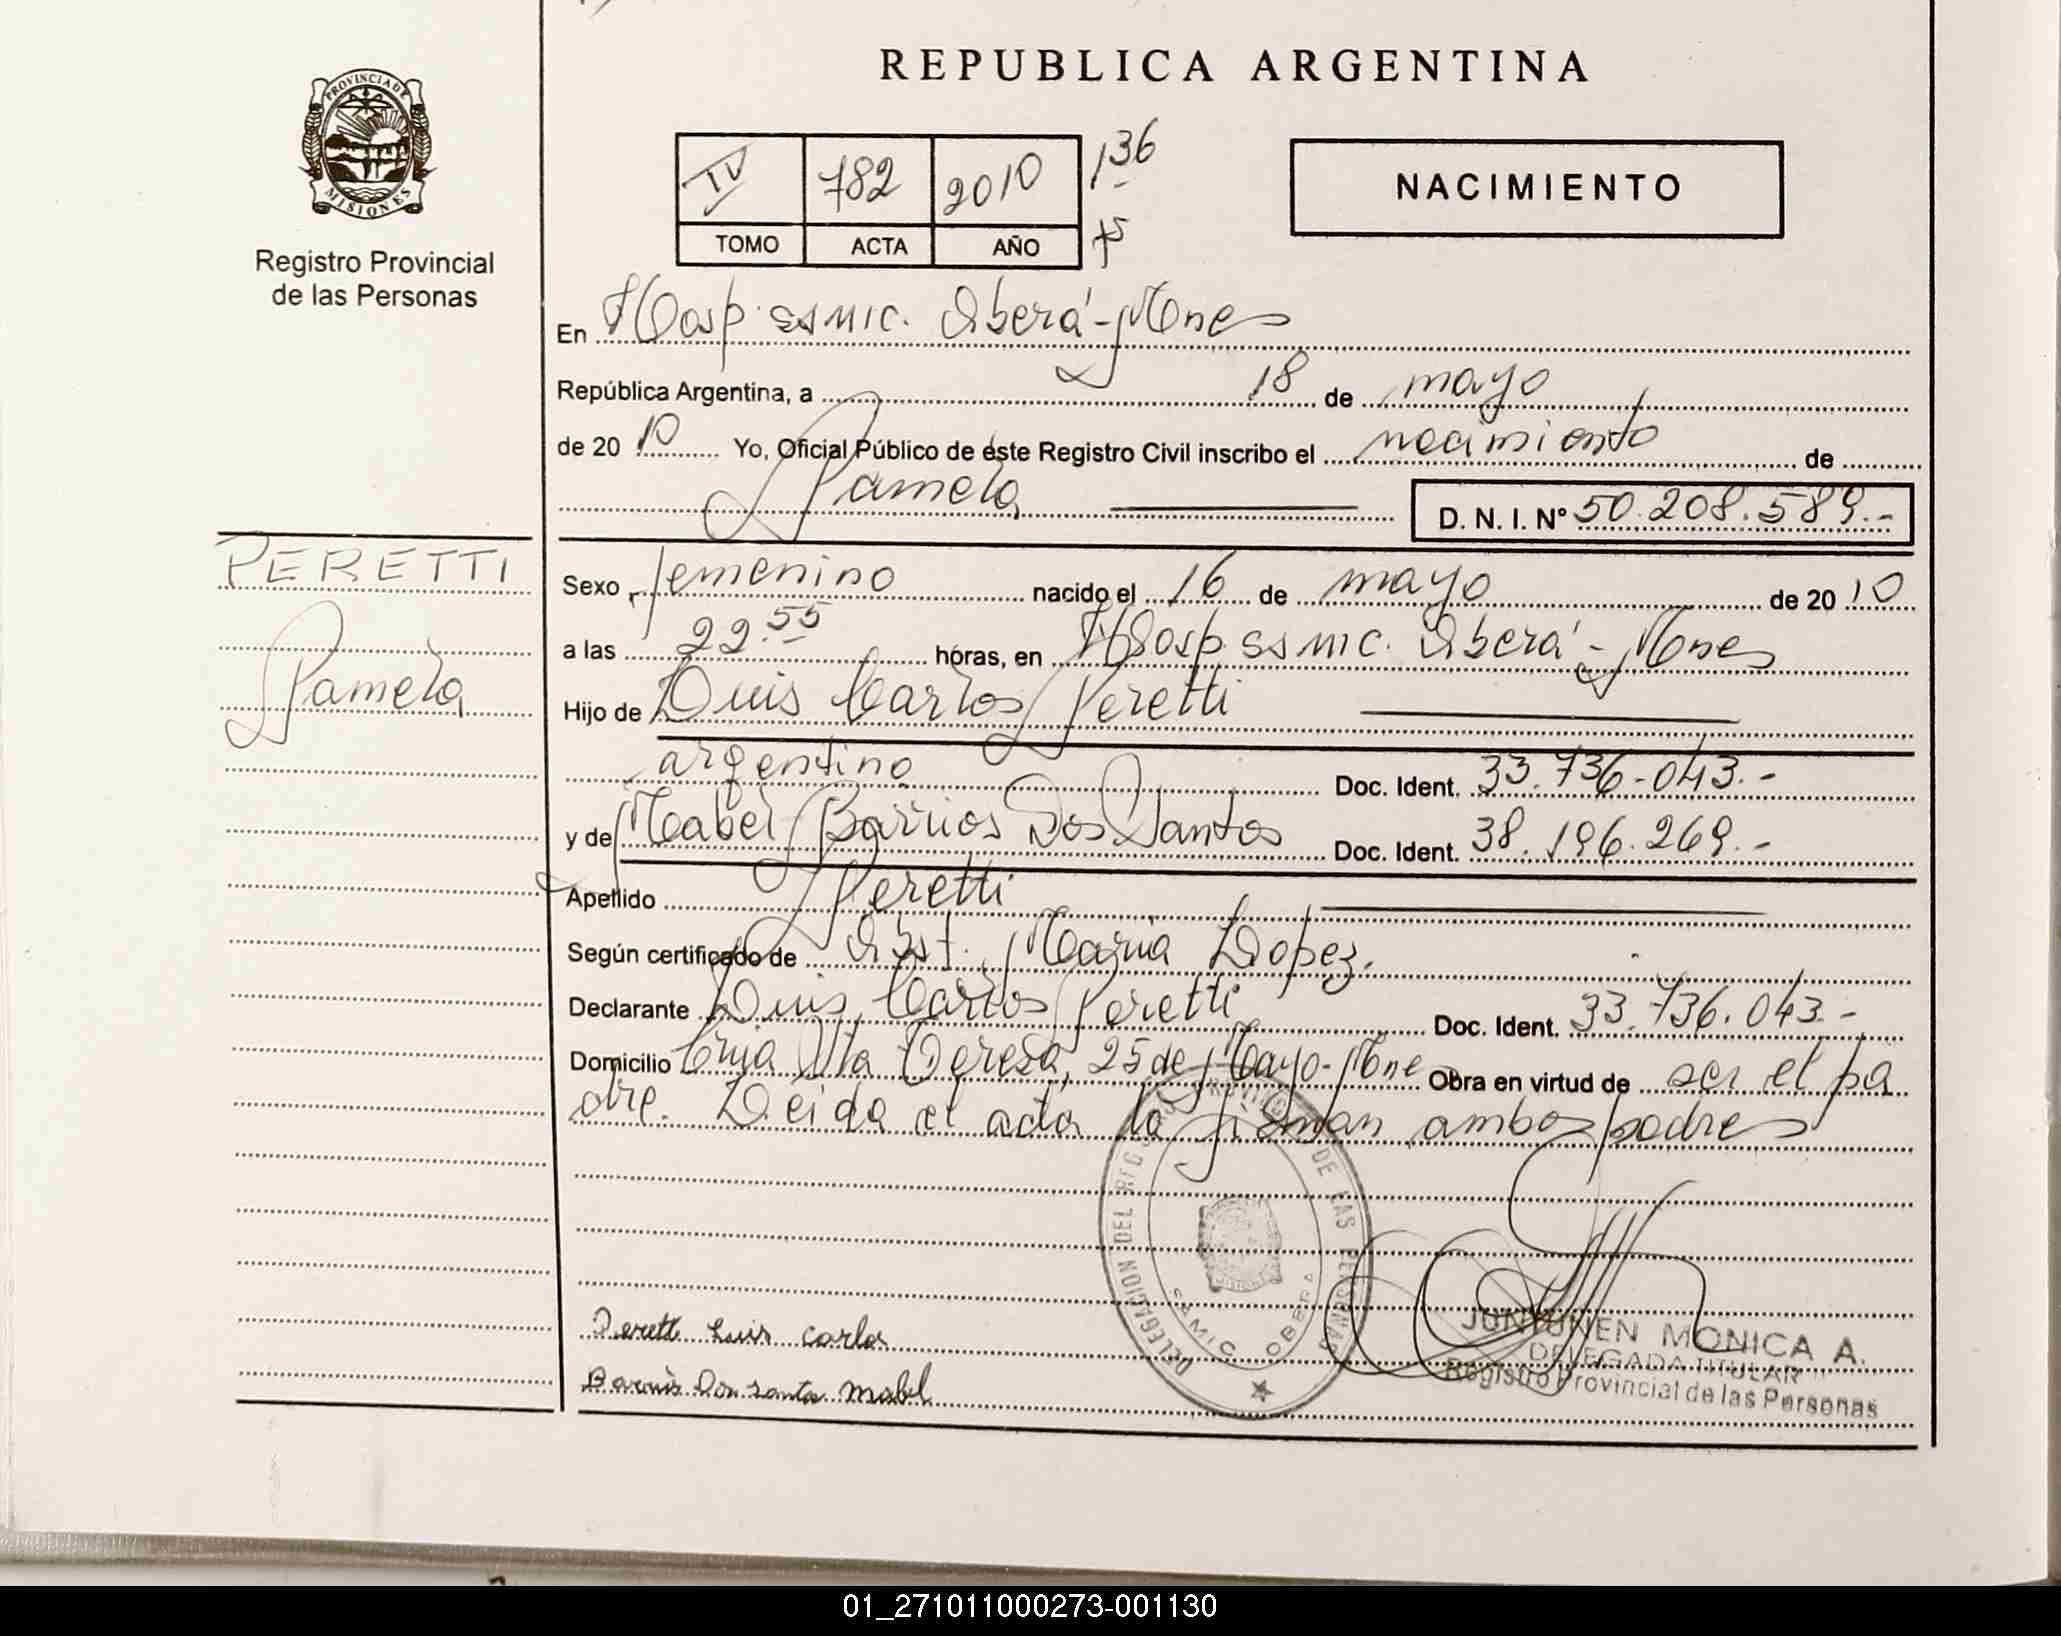 REPUBLICA ARGENTINA
PROVINCIA DE
MISIONES
Registro Provincial
de las Personas
IV 782 2010 136
TOMO ACTA AÑO
NACIMIENTO
En Hosp. SSMIC. Oberá-Mnes
República Argentina, a 18 de mayo
de 2010 Yo, Oficial Público de éste Registro Civil inscribo el nacimiento de
Pamela D. N. I. Nº 50.208.589.-
PERETTI
Pamela
Sexo femenino nacido el 16 de mayo de 2010
a las 22.55 horas, en Hosp. SSMIC. Oberá-Mnes
Hijo de Luis Carlos Peretti
argentino Doc. Ident. 33.736.043.-
y de Mabel Barrios Dos Santos Doc. Ident. 38.196.269.-
Apellido Peretti
Según certificado de Obst. Maria Lopez.
Declarante Luis Carlos Peretti Doc. Ident. 33.736.043.-
Domicilio Cnia Sta Teresa, 25 de Mayo-Mne Obra en virtud de ser el pa
dre. Leida el acta la firman ambos padres
DELEGACION DEL REGISTRO PROVINCIAL DE LAS PERSONAS
SAMIC OBERA
Peretti Luis Carlos
Barrios Dos Santos Mabel
JUNTUNEN MONICA A.
DELEGADA TITULAR
Registro Provincial de las Personas
01_271011000273-001130